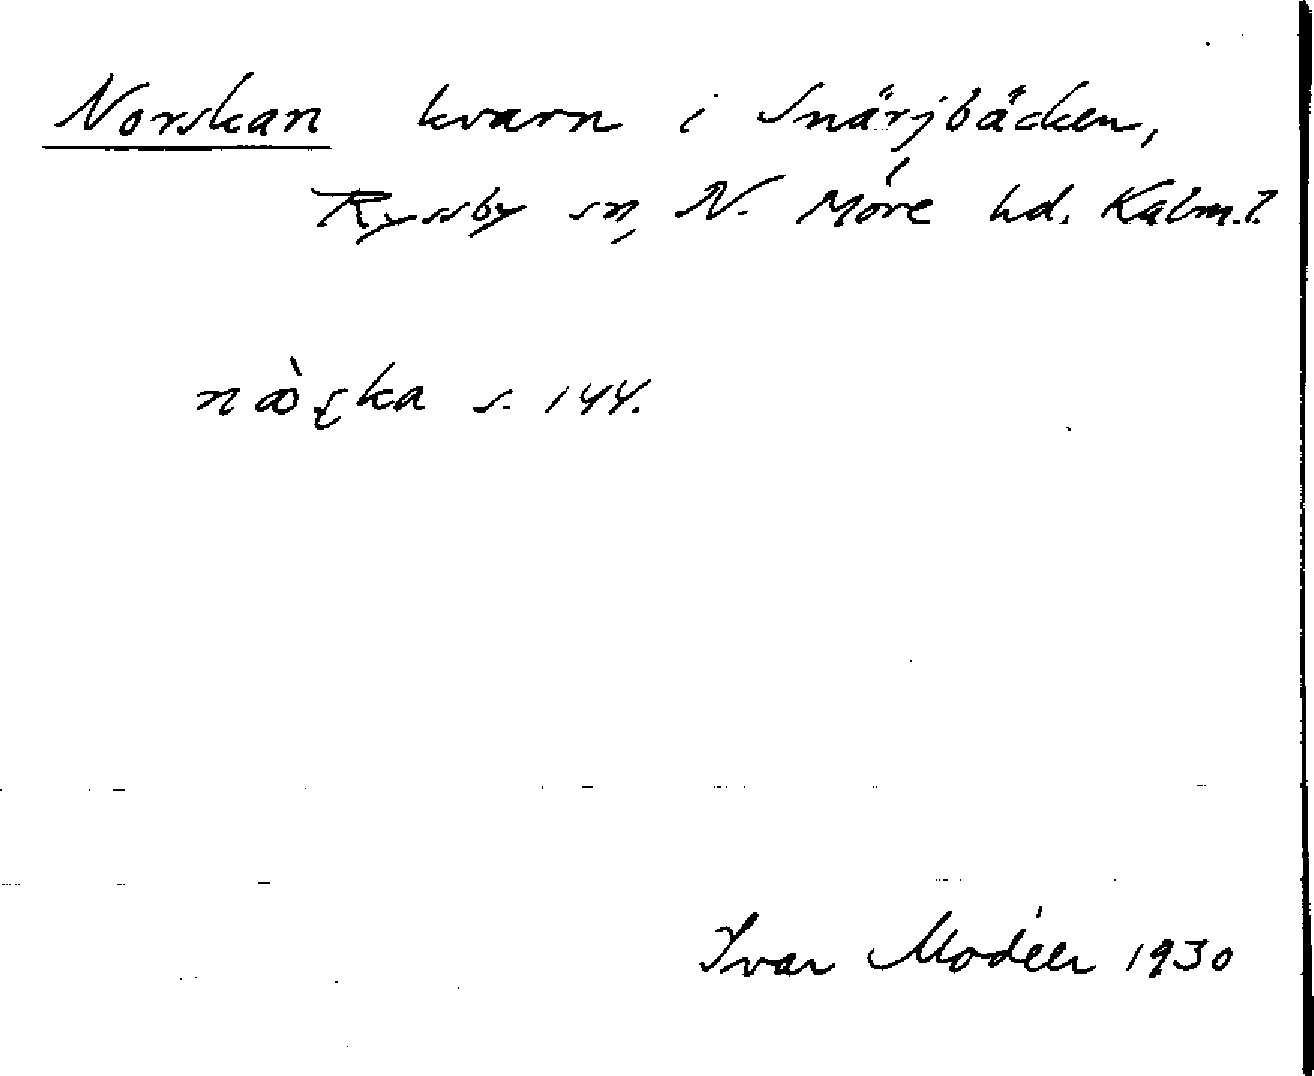 Norskan kvarn i Snärjbäcken,
Ryssby sn, N. Möre hd. Kalm. l.
nꝏ̀ʂka s. 144.
Ivar Modéer 1930